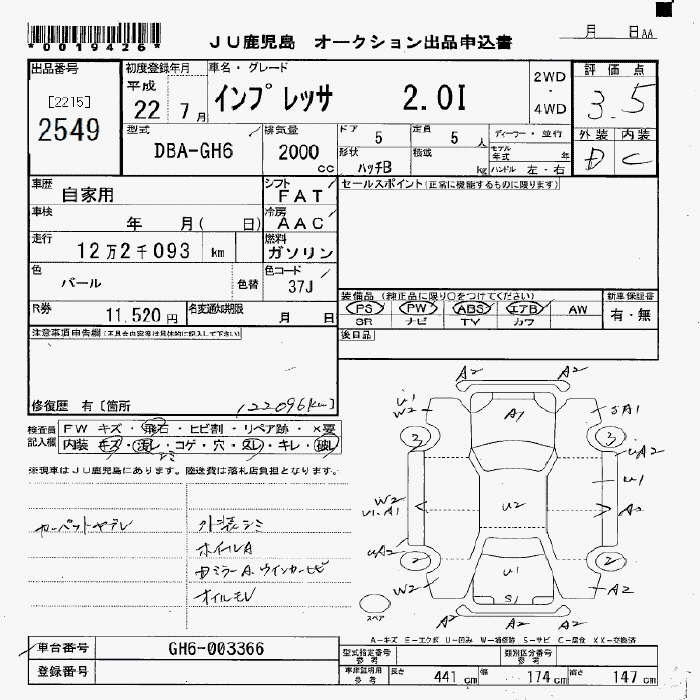 *0019426*
JU鹿児島 オークション出品申込書
月 日AA
出品番号
[2215]
2549
初度登録年月
平成
22 7月
車名・グレード
インプレッサ 2.0I
2WD
・
4WD
評価点
3.5
外装 内装
D C
型式
DBA-GH6
排気量
2000
cc
ドア 5
定員 5 人
ディーラー・並行
形状 ハッチB
積載 kg
モデル年式 年
ハンドル 左・右
車歴 自家用
シフト FAT
セールスポイント(正常に機能するものに限ります)
車検 年 月( 日)
冷房 AAC
走行 12万2千093 km
燃料 ガソリン
色 パール
色替
色コード 37J
R券 11,520円
名変通知期限 月 日
装備品(純正品に限り○をつけてください)
新車保証書
PS PW ABS エアB AW
SR ナビ TV カワ
有・無
注意事項申告欄(不具合内容等は具体的に記入して下さい)
後日品
修復歴 有〔箇所
122096km〕
検査員記入欄
FW キズ・飛石・ヒビ割・リペア跡・×要
内装 キズ・汚レ・コゲ・穴・スレ・キレ・破レ
シミ
※現車はJU鹿児島にあります。陸送費は落札店負担となります。
カーペットヤブレ
外装シミ
ホイルA
ミラーA. ウインカーヒビ
オイルモレ
A2 A2
U1
W2
A1
SA1
3 3
UA2
U1
W2
U1・A1
U2
A2
UA2
2 2
W2
U1
S1
A2
A2 A2 A2
スペア
A-キズ E-エクボ U-凹み W-補修跡 S-サビ C-腐食 XX-交換済
車台番号 GH6-003366
登録番号
型式指定番号
参考
類別区分番号
参考
車庫証明用
参考
長さ 441 cm
幅 174 cm
高さ 147 cm